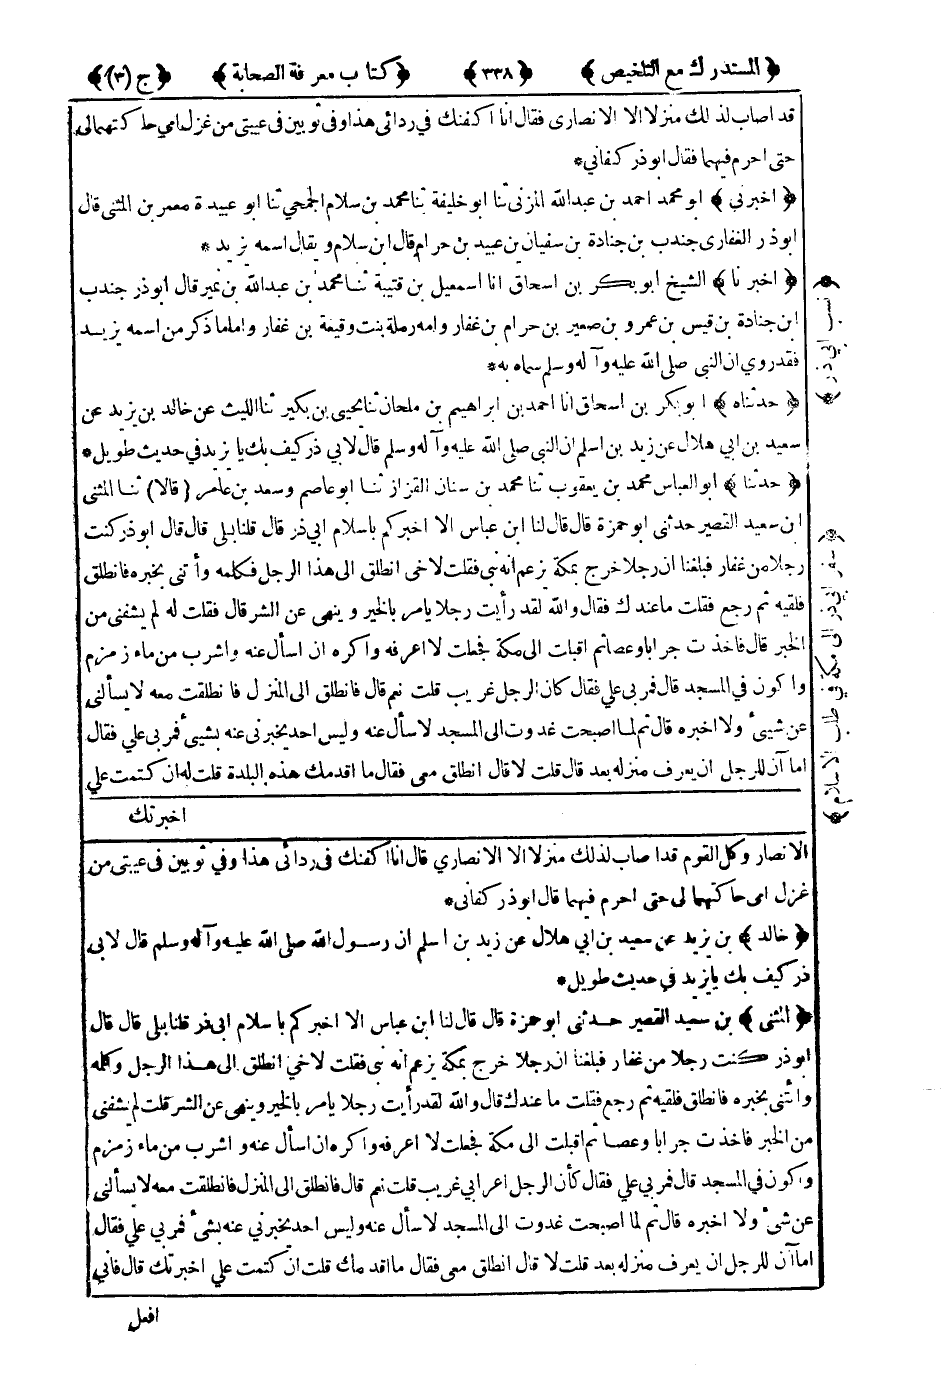 ﴿ المستدرك مع التلخيص ﴾ ﴿ ٣٣٨ ﴾ ﴿ كتاب معرفة الصحابة ﴾ ﴿ ج (٣) ﴾
قد اصاب لذلك منزلا الا الانصارى فقال انا اكفنك في ردائى هذا وفى ثوبين فى عيبتى من غزل امي حاكتهمالى
حتى احرم فيهما فقال ابو ذر كفاني*
﴿ اخبرني ﴾ ابو محمد احمد بن عبدالله المزنى ثنا ابو خليفة ثنا محمد بن سلام الجمحي ثنا ابو عبيدة معمر بن المثنى قال
ابوذر الغفارى جندب بن جنادة بن سفيان بن عبيد بن حرام قال ابن سلام ويقال اسمه يزيد *
﴿ اخبرنا ﴾ الشيخ ابوبكر بن اسحاق انا اسمعيل بن قتيبة ثنا محمد بن عبدالله بن نمير قال ابوذر جندب
ابن جنادة بن قيس بن عمرو بن صعير بن حرام بن غفار وامه رملة بنت وقيعة بن غفار واماما ذكر من اسمه يزيد
فقدروي ان النبي صلى الله عليه وآله وسلم سماه به*
﴿ حدثناه ﴾ ابوبكر بن اسحاق انا احمد بن ابراهيم بن ملحان ثنا يحيى بن بكير ثنا الليث عن خالد بن يزيد عن
سعيد بن ابي هلال عن زيد بن اسلم ان النبى صلى الله عليه وآله وسلم قال لابي ذر كيف بك يا يزيد في حديث طويل*
﴿ حدثنا ﴾ ابو العباس محمد بن يعقوب ثنا محمد بن سنان القزاز ثنا ابو عاصم وسعد بن عامر ( قالا ) ثنا المثنى
ابن سعيد القصير حدثنى ابو حمزة قال قال لنا ابن عباس الا اخبركم باسلام ابي ذر قال قلنا بلى قال قال ابوذر كنت
رجلا من غفار فبلغنا ان رجلا خرج بمكة يزعم انه نبى فقلت لاخى انطلق الى هذا الرجل فكلمه وأتنى بخبره فانطلق
فلقيه ثم رجع فقلت ما عندك فقال والله لقد رأيت رجلا يامر بالخير وينهى عن الشر قال فقلت له لم يشفنى من
الخبر قال فاخذت جرابا وعصا ثم اقبلت الى مكة فجعلت لا اعرفه واكره ان اسأل عنه واشرب من ماء زمزم
واكون في المسجد قال فمر بي علي فقال كان الرجل غريب قلت نعم قال فانطلق الى المنزل فانطلقت معه لا يسألنى
عن شيئ ولا اخبره قال ثم لما اصبحت غدوت الى المسجد لا سأل عنه وليس احد يخبرنى عنه بشيئ فمر بى علي فقال
اما آن للرجل ان يعرف منزله بعد قال قلت لا قال انطلق معى فقال ما اقدمك هذه البلدة قلت له ان كتمت علي
اخبرتك
الانصار وكل القوم قد اصاب لذلك منزلا الا الانصاري قال انا اكفنك فى ردائى هذا وفي ثوبين فى عيبتى من
غزل امى حاكتهما لى حتى احرم فيهما قال ابوذر كفانى*
﴿ خالد ﴾ بن يزيد عن سعيد بن ابي هلال عن زيد بن اسلم ان رسول الله صلى الله عليه وآله وسلم قال لابى
ذر كيف بك يا يزيد في حديث طويل*
﴿ المثنى ﴾ بن سعيد القصير حدثنى ابو حمزة قال قال لنا ابن عباس الا اخبركم باسلام ابى ذر قلنا بلى قال قال
ابوذر كنت رجلا من غفار فبلغنا ان رجلا خرج بمكة يزعم انه نبى فقلت لاخي انطلق الى هذا الرجل وكلمه
وائتنى بخبره فانطلق فلقيه ثم رجع فقلت ما عندك قال والله لقد رأيت رجلا يامر بالخير وينهى عن الشر قلت لم يشفنى
من الخبر فاخذت جرابا وعصا ثم اقبلت الى مكة فجعلت لا اعرفه واكره ان اسأل عنه واشرب من ماء زمزم
واكون في المسجد قال فمر بي علي فقال كأن الرجل اعرابي غريب قلت نعم قال فانطلق الى المنزل فانطلقت معه لا يسألنى
عن شئ ولا اخبره قال ثم لما اصبحت غدوت الى المسجد لا سأل عنه وليس احد يخبرني عنه بشئ فمر بي علي فقال
اما آن للرجل ان يعرف منزله بعد قلت لا قال انطلق معى فقال ما اقدمك قلت ان كتمت علي اخبرتك قال فاني
افعل
﴿ نسب ابي ذر ﴾
﴿ سفر ابي ذر الى مكة في طلب الاسلام ﴾